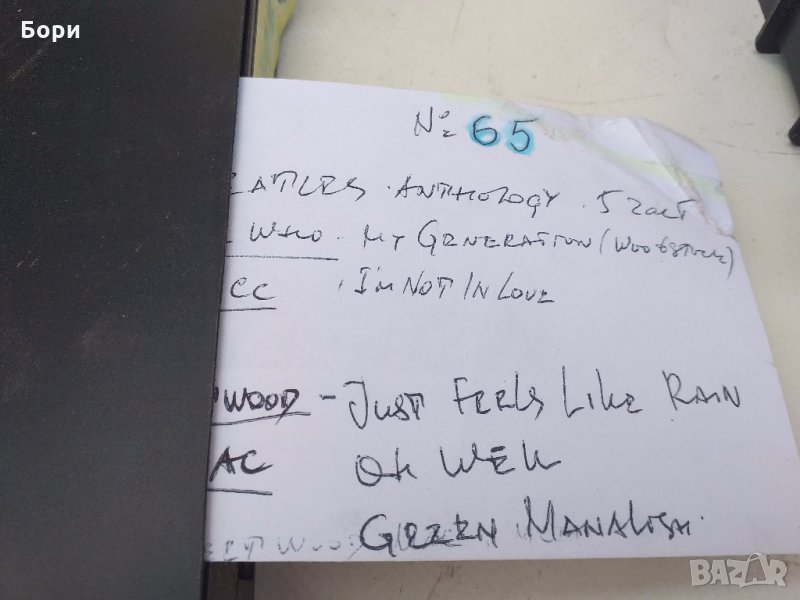 Бори
№ 65
EATLES · ANTHOLOGY · 5 част
WHO · MY GENERATION (WOODSTOCK)
CC · I'M NOT IN LOVE
WOOD - JUST FEELS LIKE RAIN
AC OH WELL
GREEN MANALISHI
BAZAR